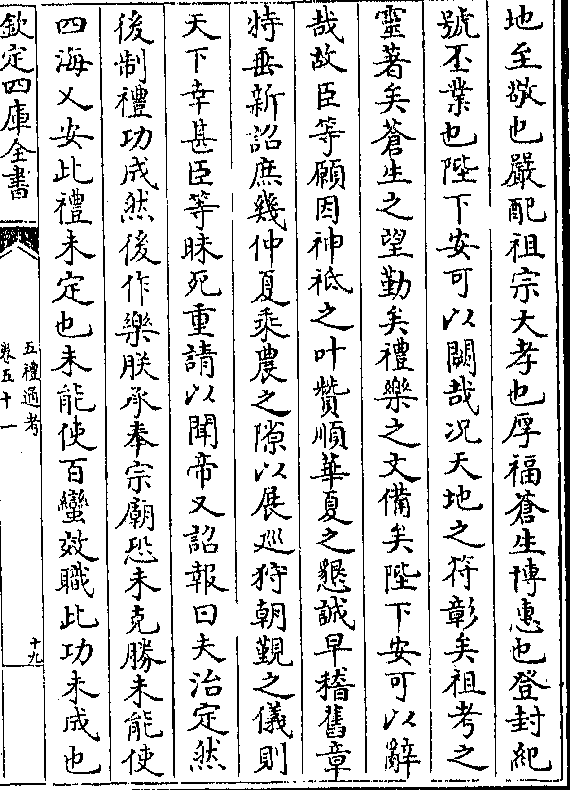 地至敬也嚴配祖宗大孝也厚福蒼生博惠也登封紀
號丕業也陛下安可以闕哉况天地之符彰矣祖考之
靈著矣蒼生之望勤矣禮樂之文備矣陛下安可以辭
哉故臣等願因神祗之叶贊順華夏之懇誠早稽舊章
特垂新詔庶幾仲夏乘農之隙以展巡狩朝覲之儀則
天下幸甚臣等昧死重請以聞帝又詔報曰夫治定然
後制禮功成然後作樂朕承奉宗廟恐未克勝未能使
四海乂安此禮未定也未能使百蠻效職此功未成也
欽定四庫全書
五禮通考
卷五十一
十九